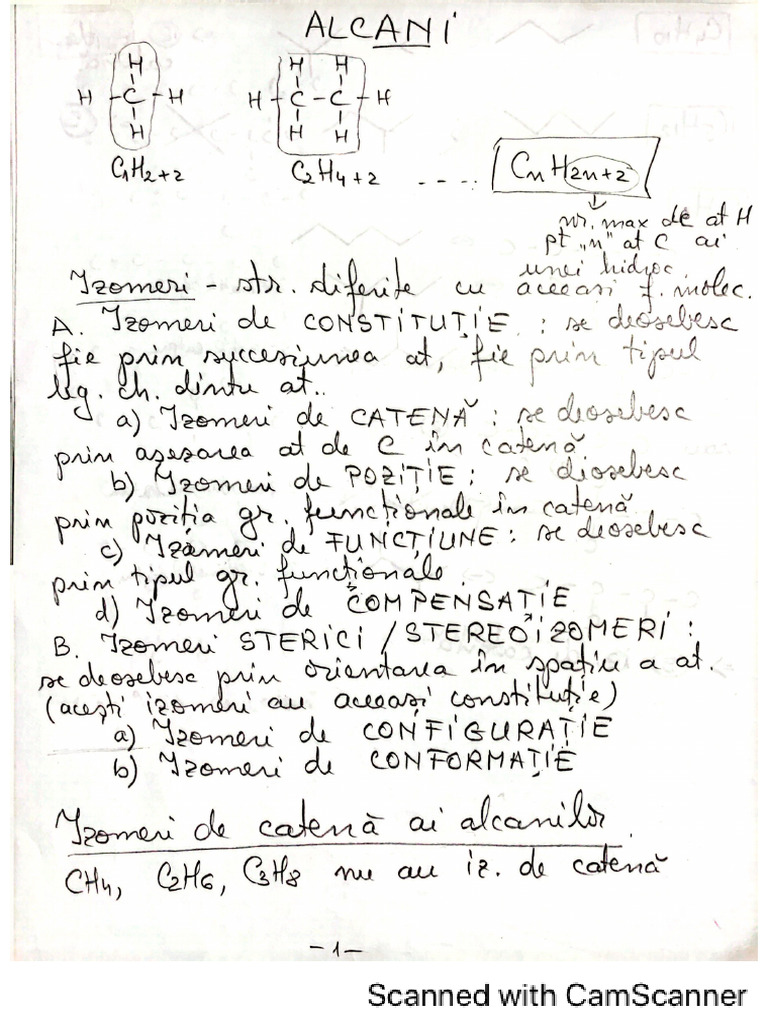 ALCANI
H H H
H - C - H H - C - C - H
H H H
C1H2+2 C2H4+2 - - - - . CnH2n+2
nr. max de at H
pt „n" at C ai
unei hidroc.
Izomeri - str. diferite cu aceeasi f. molec.
A. Izomeri de CONSTITUȚIE : se deosebesc
fie prin succesiunea at, fie prin tipul
leg. ch. dintre at..
a) Izomeri de CATENĂ : se deosebesc
prin așezarea at de C în catenă.
b) Izomeri de POZIȚIE : se diosebesc
prin poziția gr. funcționale în catenă
c) Izomeri de FUNCȚIUNE : se deosebesc
prin tipul gr. funcționale.
d) Izomeri de COMPENSAȚIE
B. Izomeri STERICI / STEREOIZOMERI :
se deosebesc prin orientarea în spațiu a at.
(acești izomeri au aceeași constituție)
a) Izomeri de CONFIGURAȚIE
b) Izomeri de CONFORMAȚIE
Izomeri de catenă ai alcanilor.
CH4, C2H6, C3H8 nu au iz. de catenă
-1-
Scanned with CamScanner